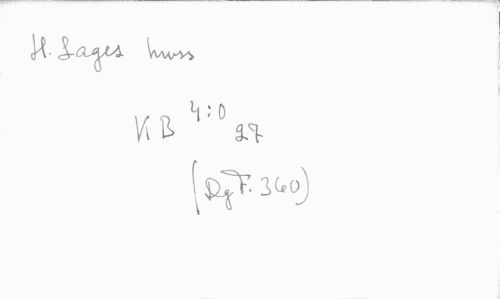 H. Lages hwss
KB 4:o 27
(Dg F. 360)